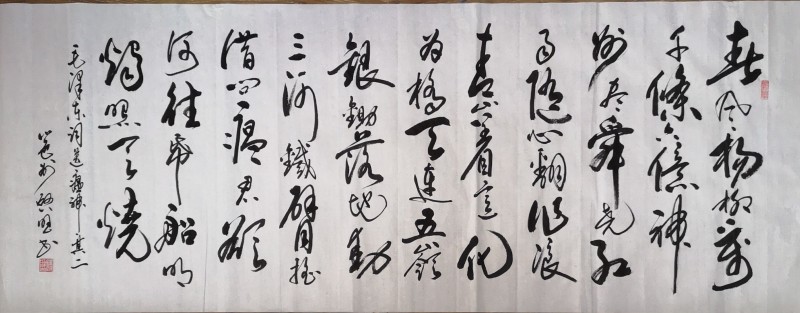 春风杨柳万
千條六億神
州尽舜尧红
雨随心翻作浪
青山着意化
为橋天連五嶺
銀鋤落地動
三河鐵臂摇
借问瘟君欲
何往纸船明
燭照天燒
毛泽东词送瘟神其二
书